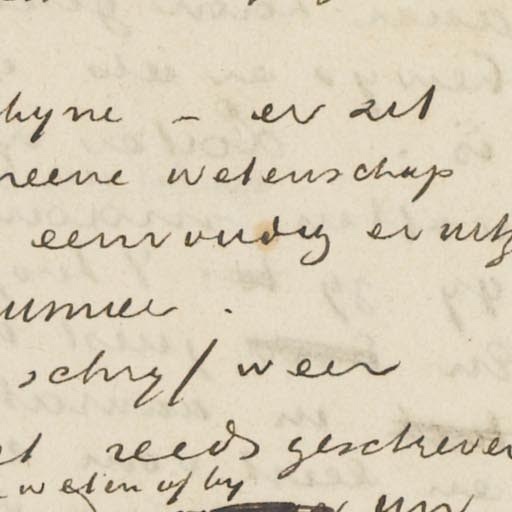 hyne - er zit
neene wetenschap
eenvoudig ernst
schryf weer
reeds geschreven
weten of hy